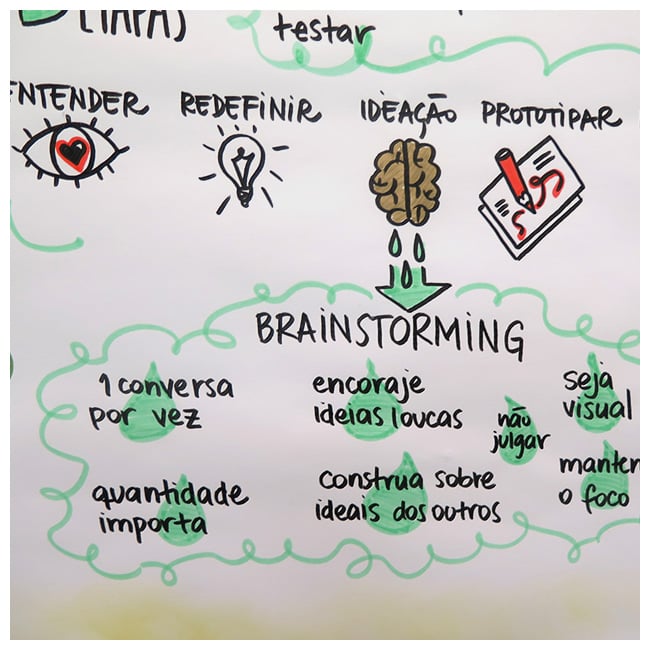 testar
ENTENDER REDEFINIR IDEAÇÃO PROTOTIPAR
BRAINSTORMING
1 conversa
por vez
encoraje
ideias loucas
não
julgar
seja
visual
quantidade
importa
construa sobre
ideais dos outros
manter
o foco